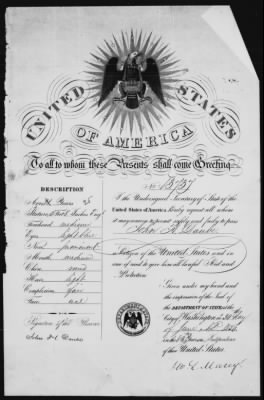 UNITED STATES
OF AMERICA
To all to whom these Presents shall come Greeting
No. 1357
DESCRIPTION
Age Years
Stature Feet Inches Eng.
Forehead medium
Eyes light blue
Nose prominent
Mouth medium
Chin
Hair light
Complexion fair
Face oval
Signature of the Bearer
John
I the Undersigned Secretary of State of the
United States of America hereby request all whom
it may concern to permit safely and freely to pass
John
a Citizen of the United States and in
case of need to give him all lawful Aid and
Protection
Given under my hand and
the impression of the Seal of
the DEPARTMENT OF STATE at the
City of Washington the day
of
of the Independence
of these United States.
W. L. Marcy